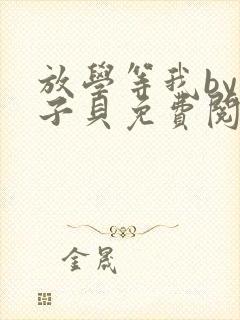 放學等我by
子貝免費閱
金晟